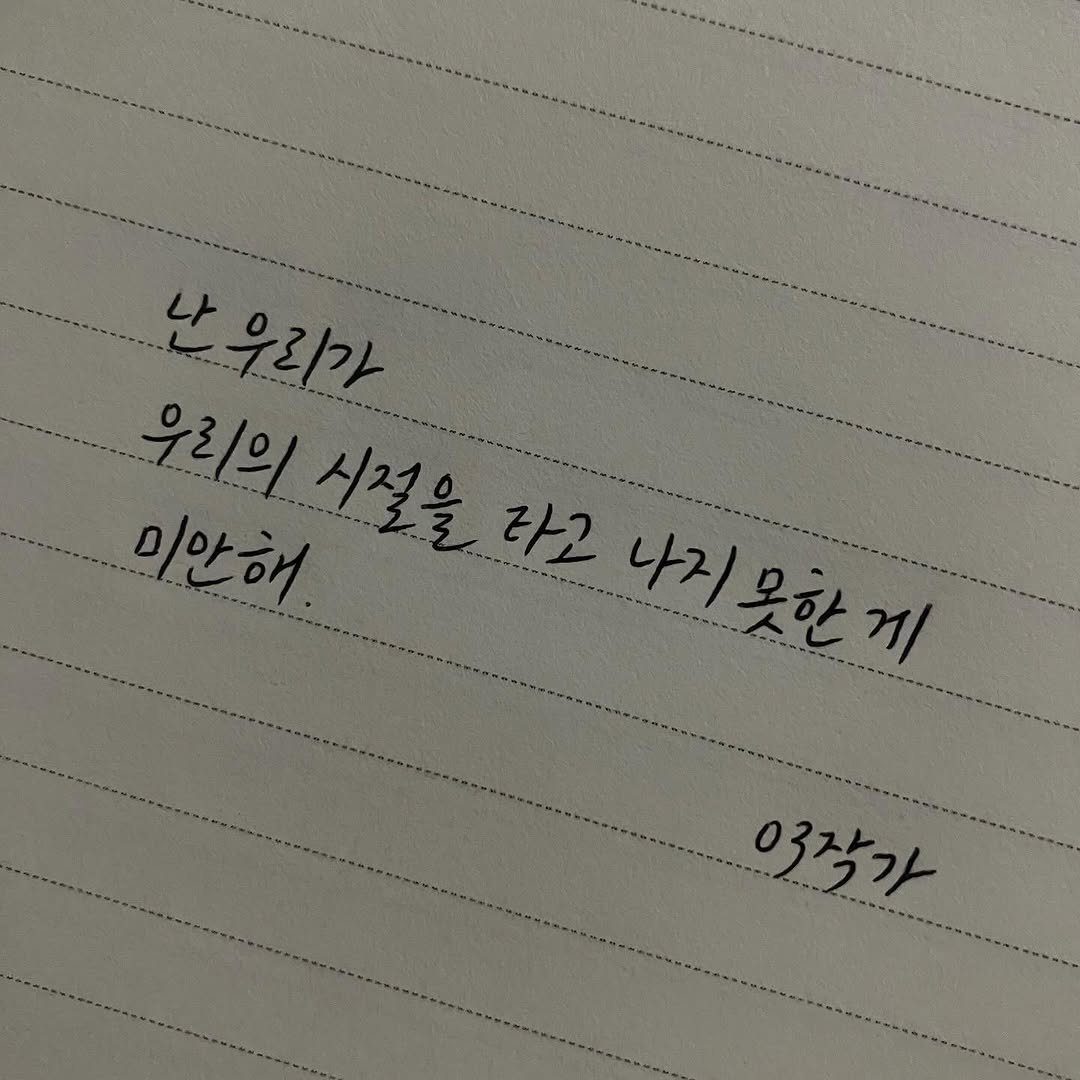 난 우리가
우리의 시절을 타고 나지 못한 게
미안해.
03작가